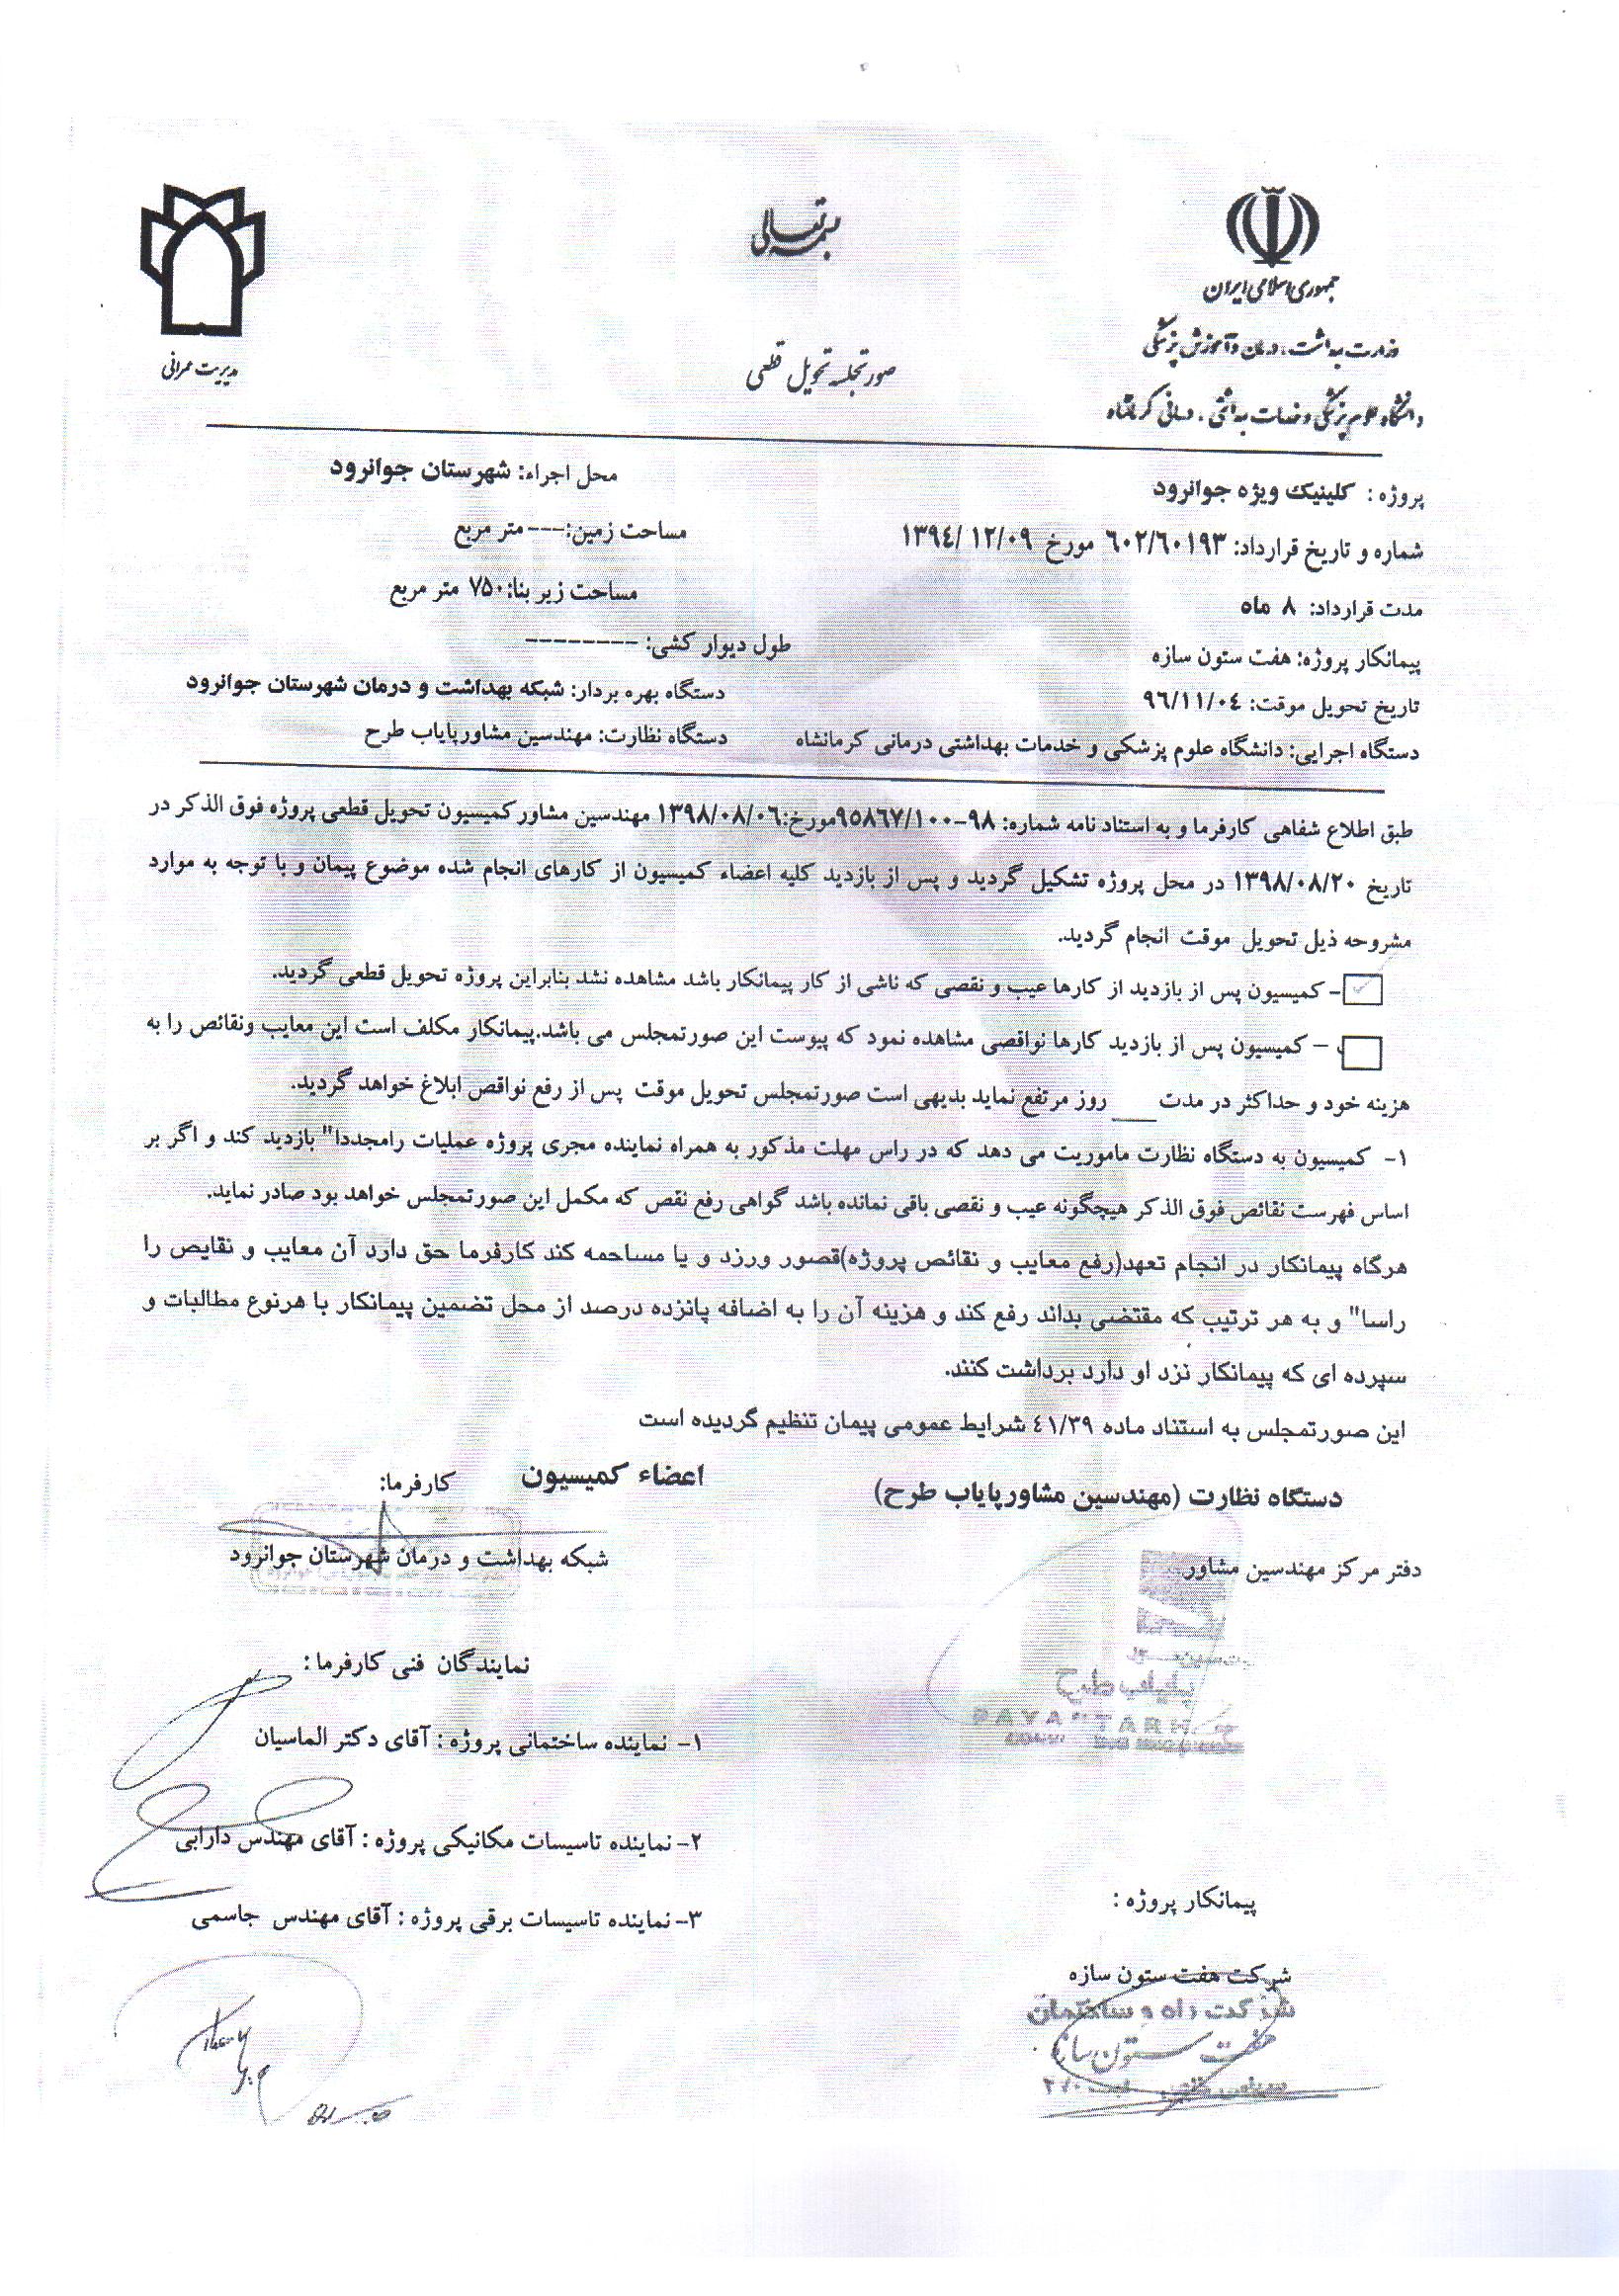 بسمه تعالی
جمهوری اسلامی ایران
وزارت بهداشت، درمان و آموزش پزشکی
دانشگاه علوم پزشکی و خدمات بهداشتی، درمانی کرمانشاه
صورتجلسه تحویل قطعی
مدیریت عمرانی
پروژه : کلینیک ویژه جوانرود
محل اجراء: شهرستان جوانرود
شماره و تاریخ قرارداد: ۶۰۲/۶۰۱۹۳ مورخ ۱۳۹۴/۱۲/۰۹
مساحت زمین:--- متر مربع
مدت قرارداد: ۸ ماه
مساحت زیر بنا: ۷۵۰ متر مربع
پیمانکار پروژه: هفت ستون سازه
طول دیوار کشی: ---------
تاریخ تحویل موقت: ۹۶/۱۱/۰۴
دستگاه بهره بردار: شبکه بهداشت و درمان شهرستان جوانرود
دستگاه اجرایی: دانشگاه علوم پزشکی و خدمات بهداشتی درمانی کرمانشاه
دستگاه نظارت: مهندسین مشاورپایاب طرح
طبق اطلاع شفاهی کارفرما و به استناد نامه شماره: ۹۸-۹۵۸۶۷/۱۰۰مورخ:۱۳۹۸/۰۸/۰۶ مهندسین مشاور کمیسیون تحویل قطعی پروژه فوق الذکر در
تاریخ ۱۳۹۸/۰۸/۲۰ در محل پروژه تشکیل گردید و پس از بازدید کلیه اعضاء کمیسیون از کارهای انجام شده موضوع پیمان و با توجه به موارد
مشروحه ذیل تحویل موقت انجام گردید.
- کمیسیون پس از بازدید از کارها عیب و نقصی که ناشی از کار پیمانکار باشد مشاهده نشد بنابراین پروژه تحویل قطعی گردید.
– کمیسیون پس از بازدید کارها نواقصی مشاهده نمود که پیوست این صورتمجلس می باشد.پیمانکار مکلف است این معایب ونقائص را به
هزینه خود و حداکثر در مدت ____ روز مرتفع نماید بدیهی است صورتمجلس تحویل موقت پس از رفع نواقص ابلاغ خواهد گردید.
۱- کمیسیون به دستگاه نظارت ماموریت می دهد که در راس مهلت مذکور به همراه نماینده مجری پروژه عملیات رامجددا" بازدید کند و اگر بر
اساس فهرست نقائص فوق الذکر هیچگونه عیب و نقصی باقی نمانده باشد گواهی رفع نقص که مکمل این صورتمجلس خواهد بود صادر نماید.
هرگاه پیمانکار در انجام تعهد(رفع معایب و نقائص پروژه)قصور ورزد و یا مساحمه کند کارفرما حق دارد آن معایب و نقایص را
راسا" و به هر ترتیب که مقتضی بداند رفع کند و هزینه آن را به اضافه پانزده درصد از محل تضمین پیمانکار با هرنوع مطالبات و
سپرده ای که پیمانکار نزد او دارد برداشت کنند.
این صورتمجلس به استناد ماده ۴۱/۳۹ شرایط عمومی پیمان تنظیم گردیده است
اعضاء کمیسیون
دستگاه نظارت (مهندسین مشاورپایاب طرح)
کارفرما:
دفتر مرکز مهندسین مشاور
شبکه بهداشت و درمان شهرستان جوانرود
پایاب طرح
PAYAB TARH
نمایندگان فنی کارفرما :
۱- نماینده ساختمانی پروژه : آقای دکتر الماسیان
۲- نماینده تاسیسات مکانیکی پروژه : آقای مهندس دارابی
۳- نماینده تاسیسات برقی پروژه : آقای مهندس جاسمی
پیمانکار پروژه :
شرکت هفت ستون سازه
شرکت راه و ساختمان
هفت ستون سازه